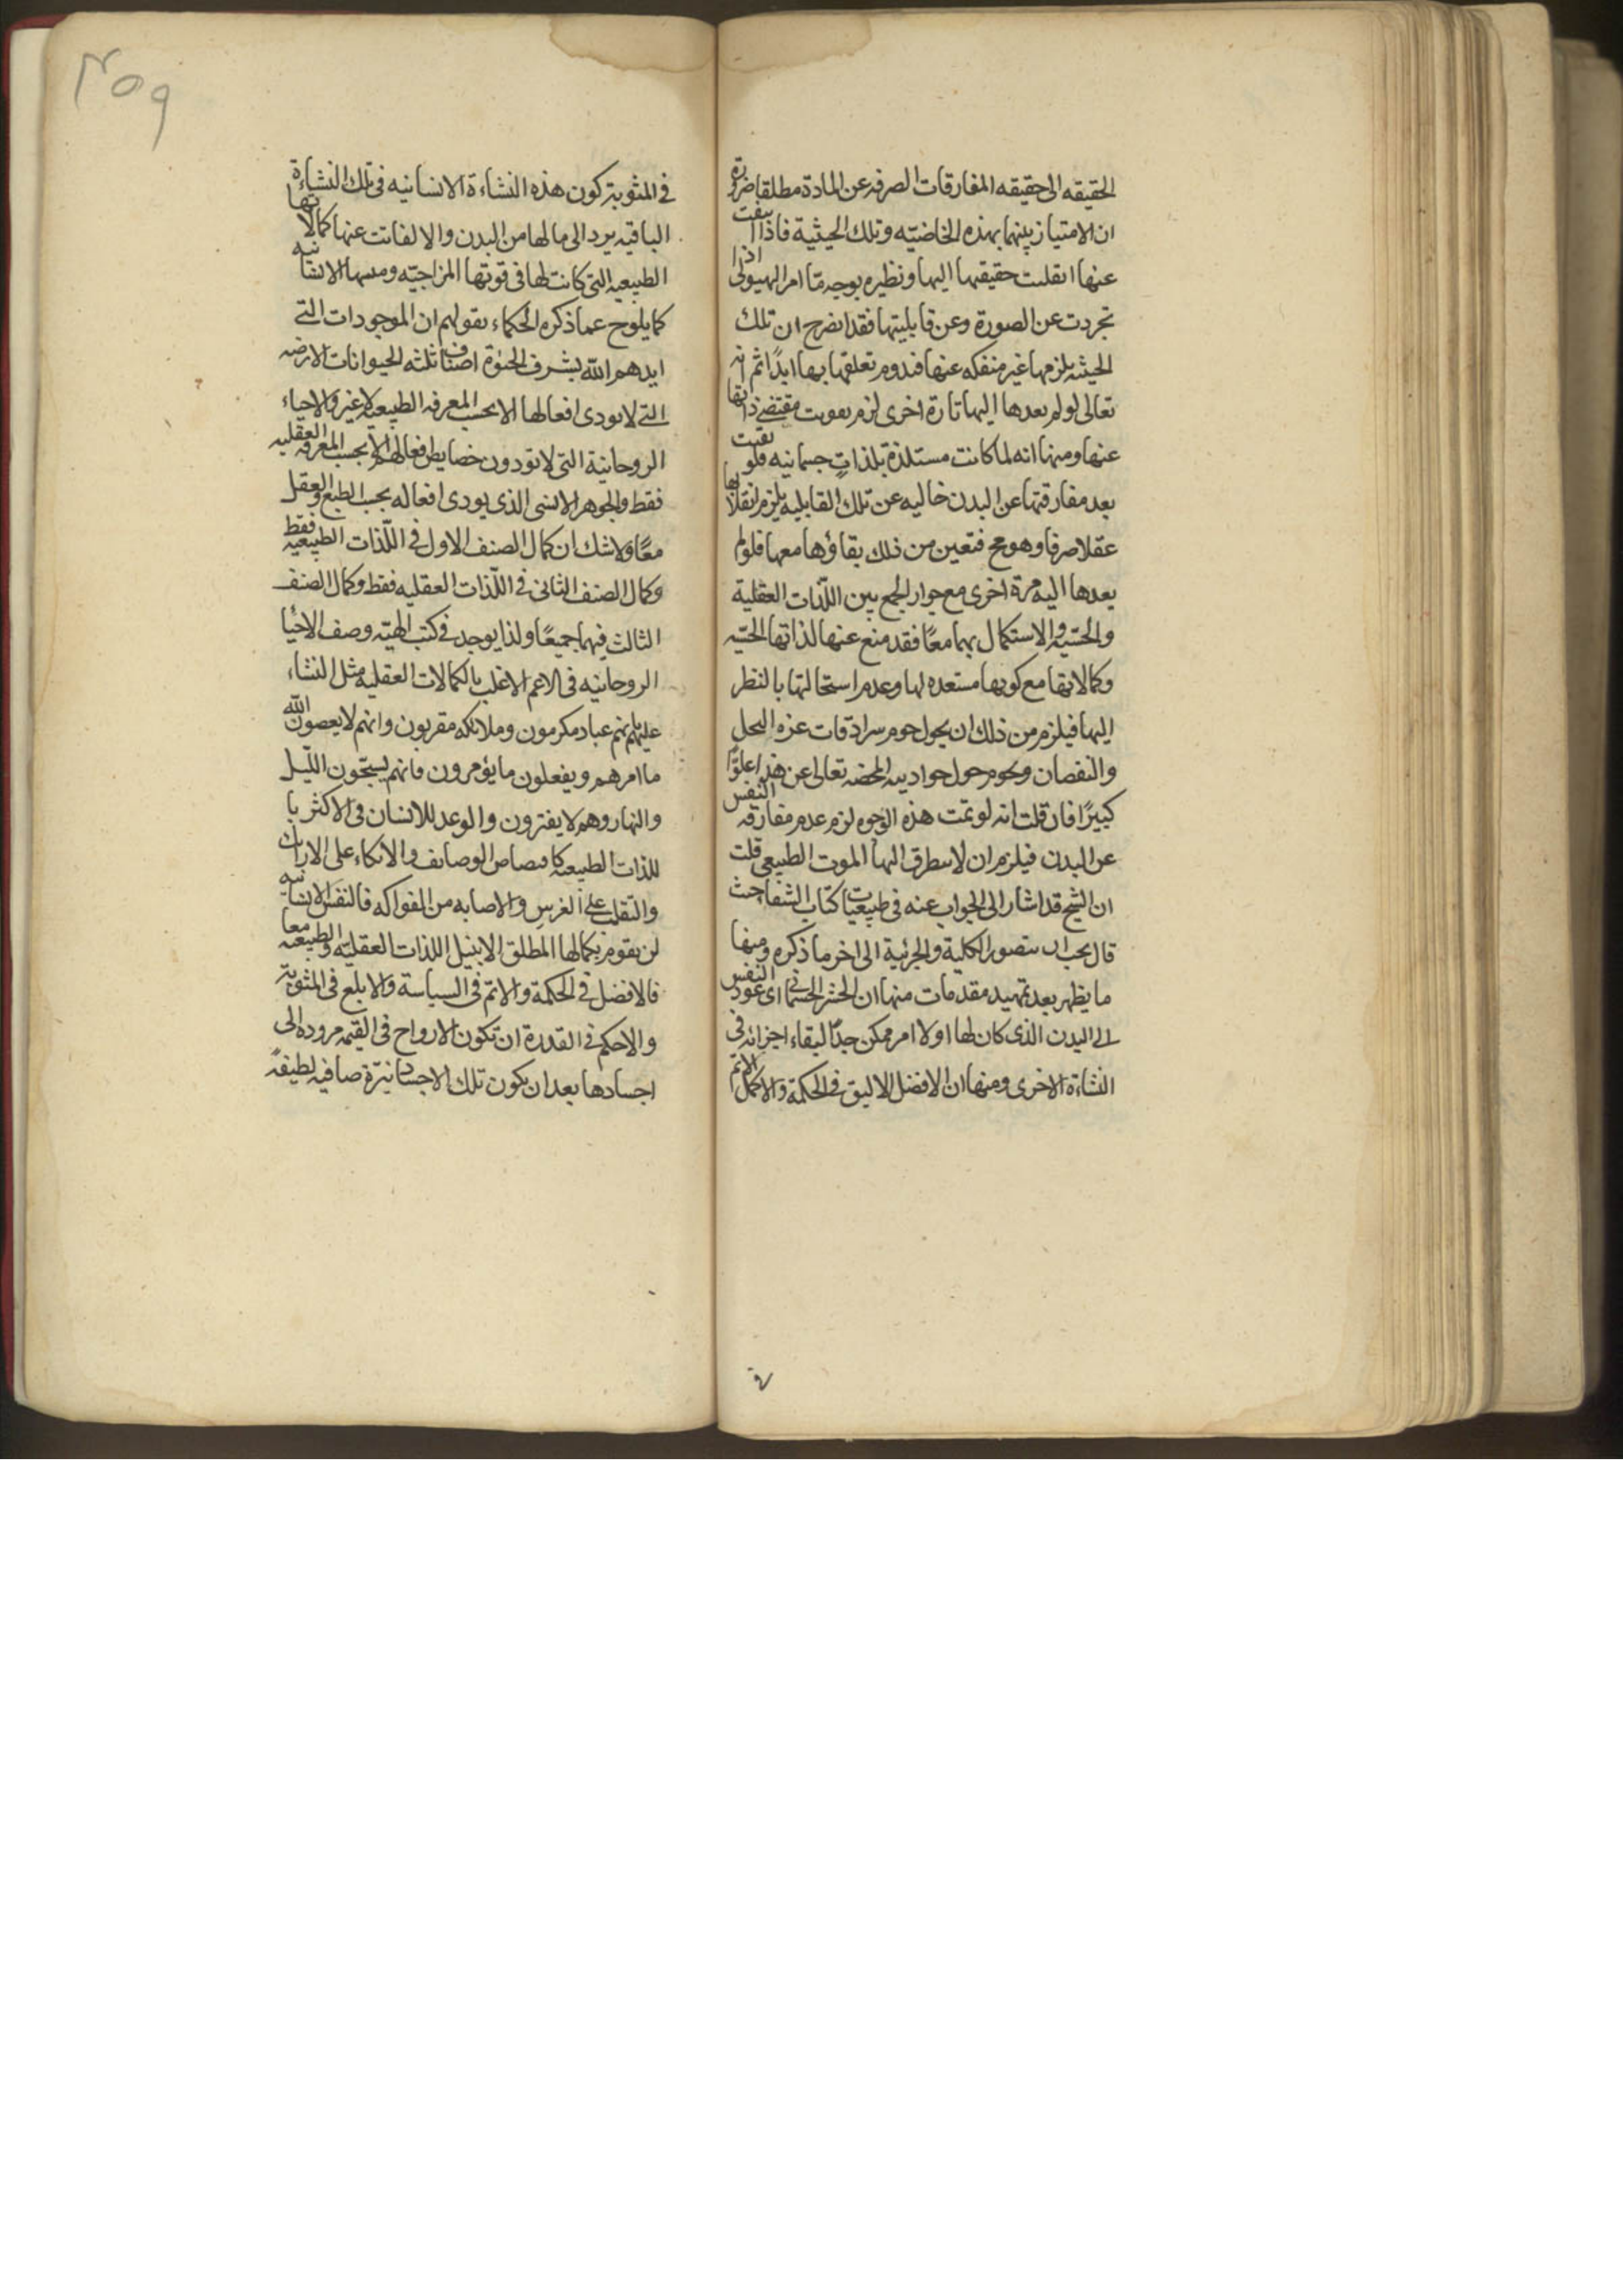 الحقيقه الى حقيقه المفارقات الصرفه عن المادة مطلقا ضرورة
ان الامتياز بينهما بهذه الخاصيّه وتلك الحيثية فاذا انتفت
عنها انقلبت حقيقتها اليها ونظيره بوجه مّا امر الهيولى اذا
تجردت عن الصورة وعن قابليتها فقد انصرح ان تلك
الحيثيه يلزمها غير منفكه عنها فيدوم تعلقها بها ابدًا ثم انه
تعالى لو لم يعدها اليها تارة اخرى لزم تفويت مقتضى ذاتها
عنها ومنها انه لما كانت مستلذة بلذات جسمانيه فلو بقيت
بعد مفارقتها عن البدن خاليه عن تلك القابليه يلزم انقلابها
عقلا صرفا وهو مح فتعين من ذلك بقاؤها معها فلو لم
يعدها اليه مرة اخرى مع جواز الجمع بين اللذّات العقلية
والحسّيه والاستكمال بهما معًا فقد منع عنها لذاتها الحسّيه
وكمالاتها مع كونها مستعده لها وعدم استحالتها بالنظر
اليها فيلزم من ذلك ان يحول حوم سرادقات عزه البخل
والنقصان ويحوم حول جواديته المحضه تعالى عن هذا علوًّا
كبيرًا فان قلت انه لو تمت هذه الوجوه لزم عدم مفارقه النفس
عن البدن فيلزم ان لا يتطرق اليها الموت الطبيعى قلت
ان الشيخ قد اشار الى الجواب عنه فى طبيعيات كتاب الشفا حيث
قال يجب ان يتصور الكلية والجزئية الى اخر ما ذكره ومنها
ما يظهر بعد تمهيد مقدمات منها ان الحشر الجسمانى اى عود النفس
الى البدن الذى كان لها اولا امر ممكن جدًّا لبقاء اجزائه فى
النشاءة الاخرى ومنها ان الافضل الاليق فى الحكمة والاكمل الاتم
فى
٢٥٩
فى المثوبة كون هذه النشاءة الانسانيه فى تلك النشاءة
الباقيه يرد الى ما لها من البدن والا لفاتت عنها كمالاتها
الطبيعيه التى كانت لها فى قوتها المزاجيّه ومنها الانسانيه
كما يلوح عما ذكره الحكماء بقولهم ان الموجودات التى
ايدهم الله بشرف الحيوة اصناف ثلثه الحيوانات الارضيه
التى لا تودى افعالها الا بحسب المعرفه الطبيعيه لا غير والاحياء
الروحانية التى لا تودون خصايص افعالهم الا بحسب المعرفه العقليه
فقط والجوهر الانسى الذى يودى افعاله بحسب الطبع والعقل
معًا ولا شك ان كمال الصنف الاول فى اللّذات الطبيعيه فقط
وكمال الصنف الثانى فى اللّذات العقليه فقط وكمال الصنف
الثالث فيهما جميعًا ولذا يوجد فى كتب الهيّه وصف الاحيا
الروحانيه فى الاعم الاغلب بالكمالات العقليه مثل الثناء
عليهم بانهم عباد مكرمون وملائكه مقربون وانهم لا يعصون الله
ما امرهم ويفعلون ما يؤمرون فانهم يسبّحون اللّيل
والنهار وهم لا يفترون والوعد للانسان فى الاكثر با
للذات الطبيعيه كا الوصايف والاتكاء على الارائك
والتقلب على الغرس والاصابه من الفواكه فالنفس الانسانيه
لن يقوم بكمالها المطلق الا بنيل اللذات العقليّه والطبيعيه معا
فالافضل فى الحكمة والاتمّ فى السياسة والابلغ فى المثوبة
والاحكم فى القدرة ان تكون الارواح فى القيمه مروده الى
اجسادها بعد ان يكون تلك الاجساد نيّرة صافيه لطيفهً